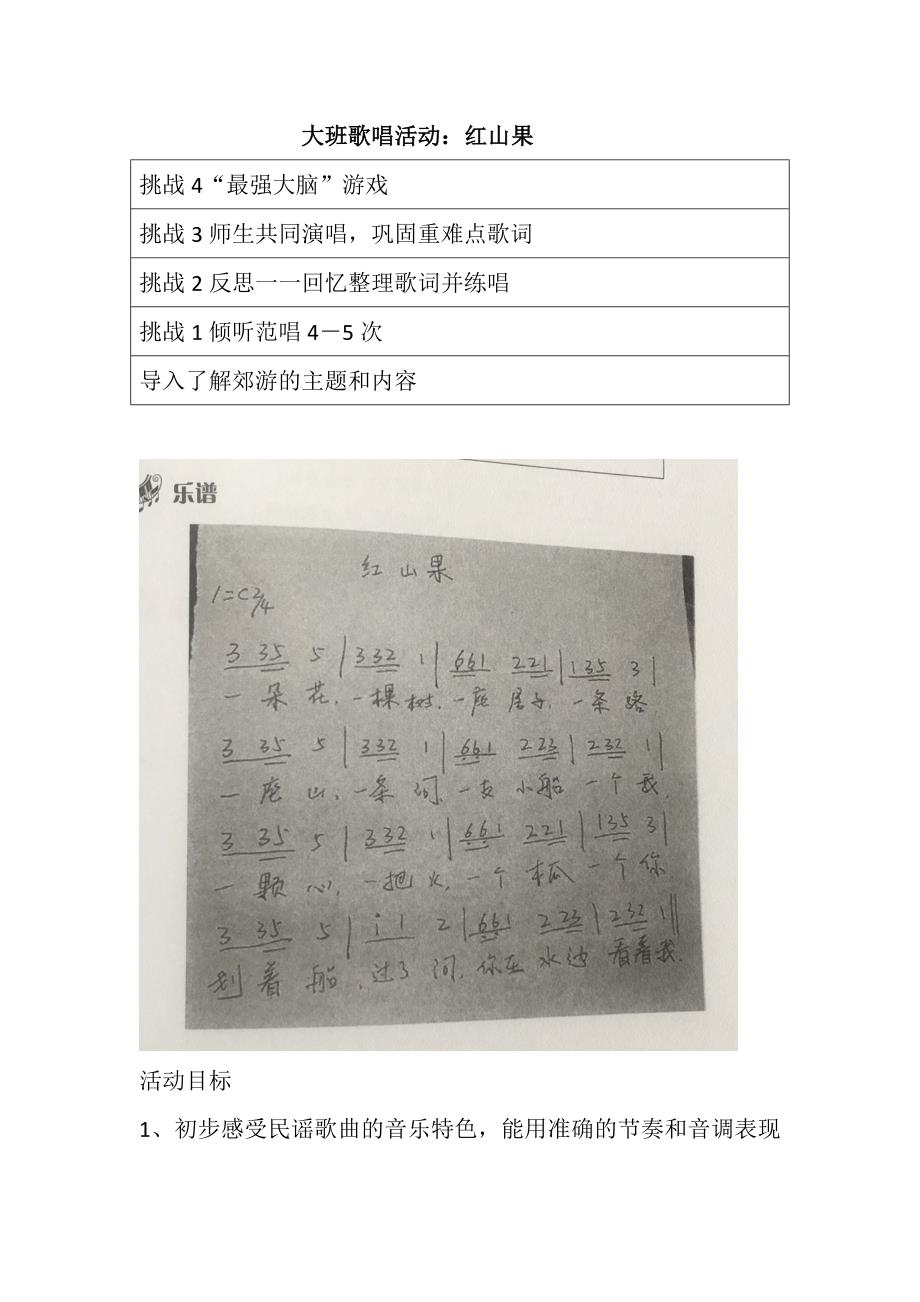 大班歌唱活动：红山果
挑战4“最强大脑”游戏
挑战3师生共同演唱，巩固重难点歌词
挑战2反思一一回忆整理歌词并练唱
挑战1倾听范唱4－5次
导入了解郊游的主题和内容
乐谱
红山果
1=C2/4
3 35 5 | 332 1 | 661 221 | 135 3 |
一朵花，一棵树，一座房子，一条路
3 35 5 | 332 1 | 661 223 | 232 1 |
一座山，一条河，一支小船一个我
3 35 5 | 332 1 | 661 221 | 135 3 |
一颗心，一把火，一个木瓜一个你
3 35 5 | i 1 2 | 661 223 | 232 1 ‖
划着船，过了河，你在水边看着我
活动目标
1、初步感受民谣歌曲的音乐特色，能用准确的节奏和音调表现